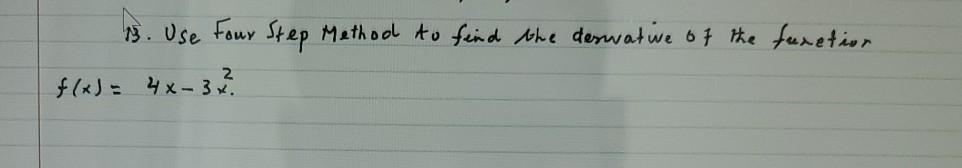 13. Use Four Step Method to find the derivative of the function
f(x) = 4x - 3x².